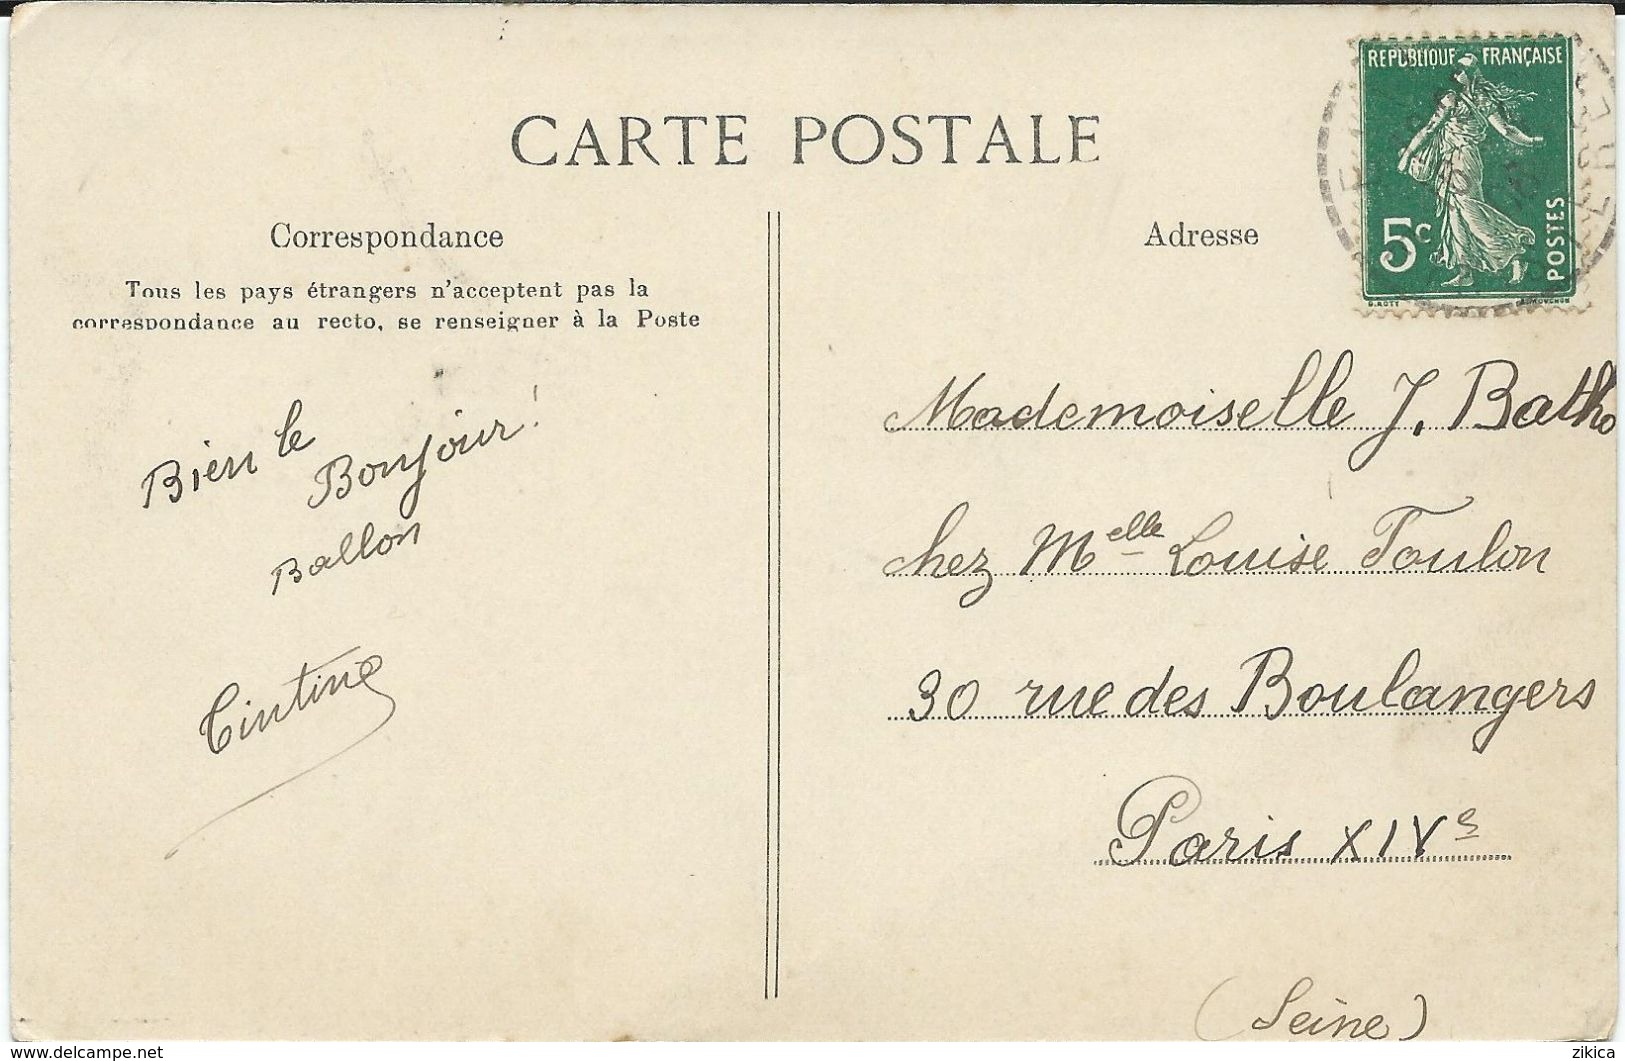 CARTE POSTALE
Correspondance
Tous les pays étrangers n'acceptent pas la
correspondance au recto, se renseigner à la Poste
Bien le
Bonjour!
Ballon
Tintine
Adresse
REPUBLIQUE FRANÇAISE
5c
POSTES
O. ROTY
Mademoiselle J. Batho
chez Melle Louise Toulon
30 rue des Boulangers
Paris XIVe
(Seine)
www.delcampe.net
zikica